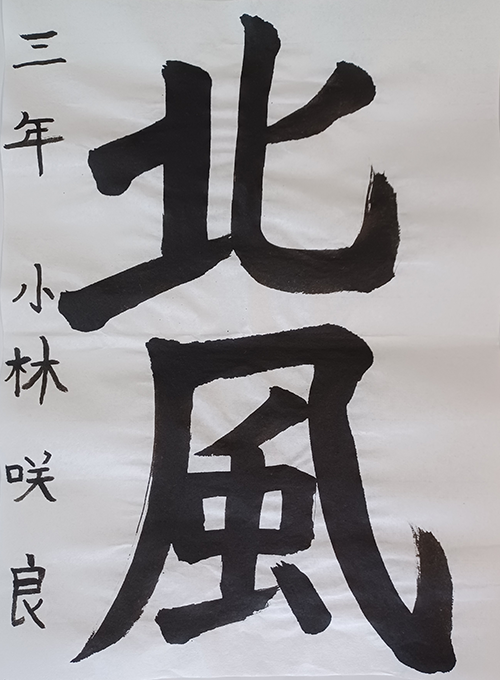 北風
三年 小林咲良